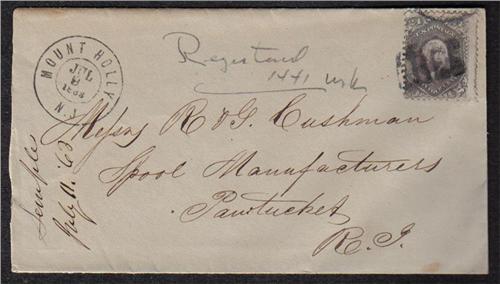 MOUNT HOLLY
JUL
8
N.J.
Registered
1441
Messrs R & G. Cushman
Spool Manufacturers
Pawtucket
R. I.
Samples
July 11. '63